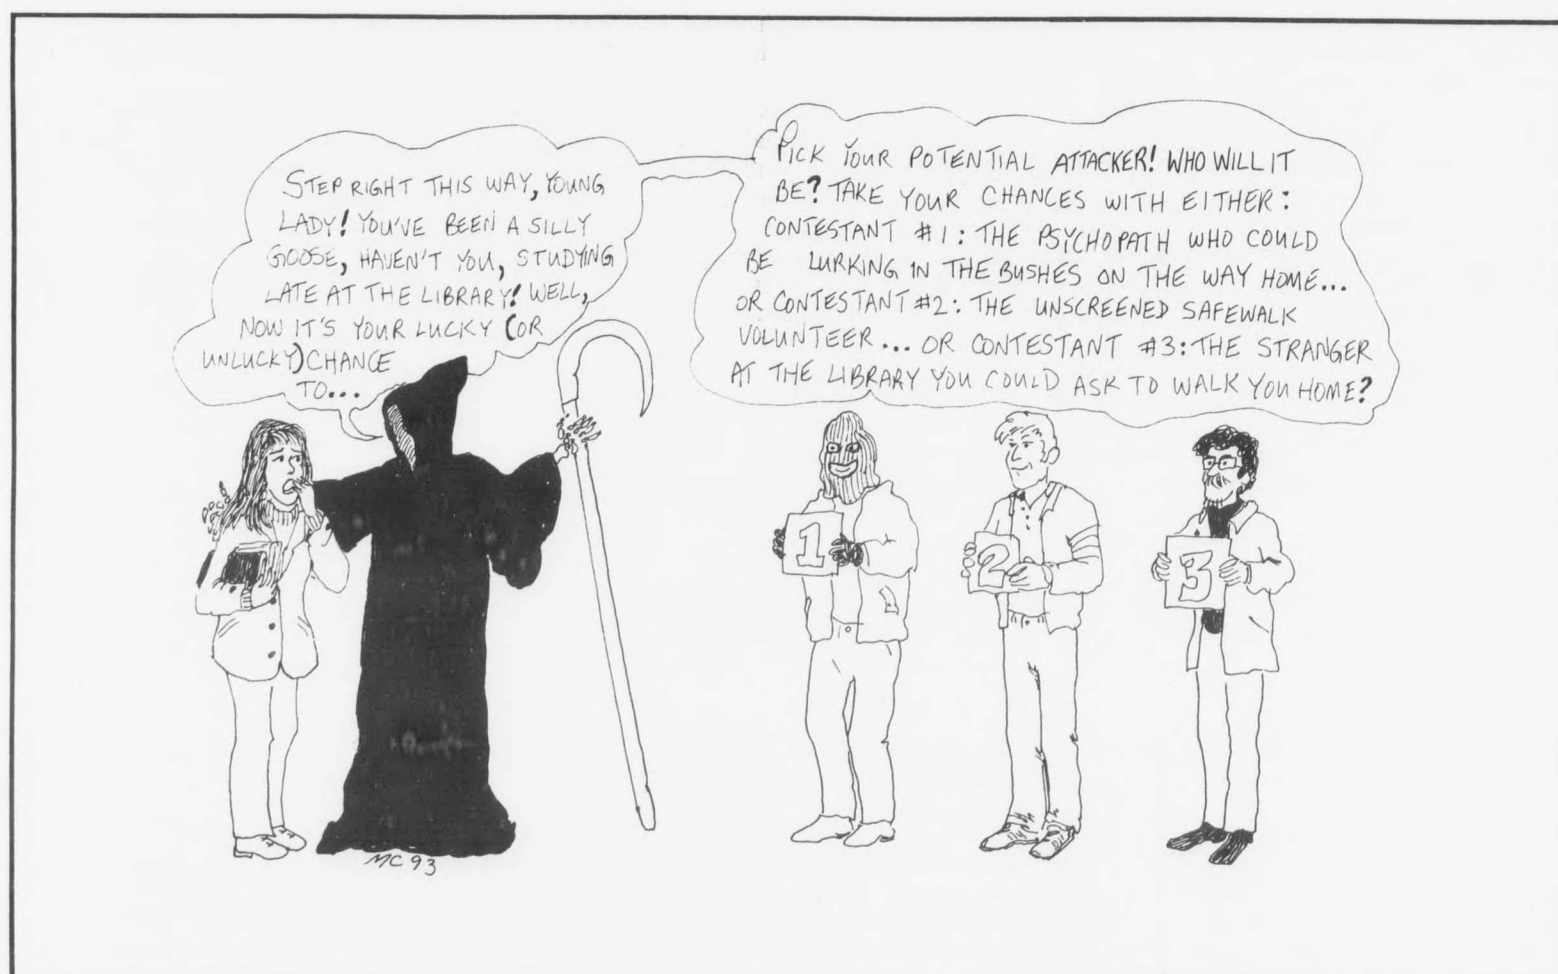 STEP RIGHT THIS WAY, YOUNG
LADY! YOU'VE BEEN A SILLY
GOOSE, HAVEN'T YOU, STUDYING
LATE AT THE LIBRARY! WELL,
NOW IT'S YOUR LUCKY (OR
UNLUCKY) CHANCE
TO...
PICK YOUR POTENTIAL ATTACKER! WHO WILL IT
BE? TAKE YOUR CHANCES WITH EITHER:
CONTESTANT #1: THE PSYCHOPATH WHO COULD
BE LURKING IN THE BUSHES ON THE WAY HOME...
OR CONTESTANT #2: THE UNSCREENED SAFEWALK
VOLUNTEER... OR CONTESTANT #3: THE STRANGER
AT THE LIBRARY YOU COULD ASK TO WALK YOU HOME?
1
2
3
MC 93